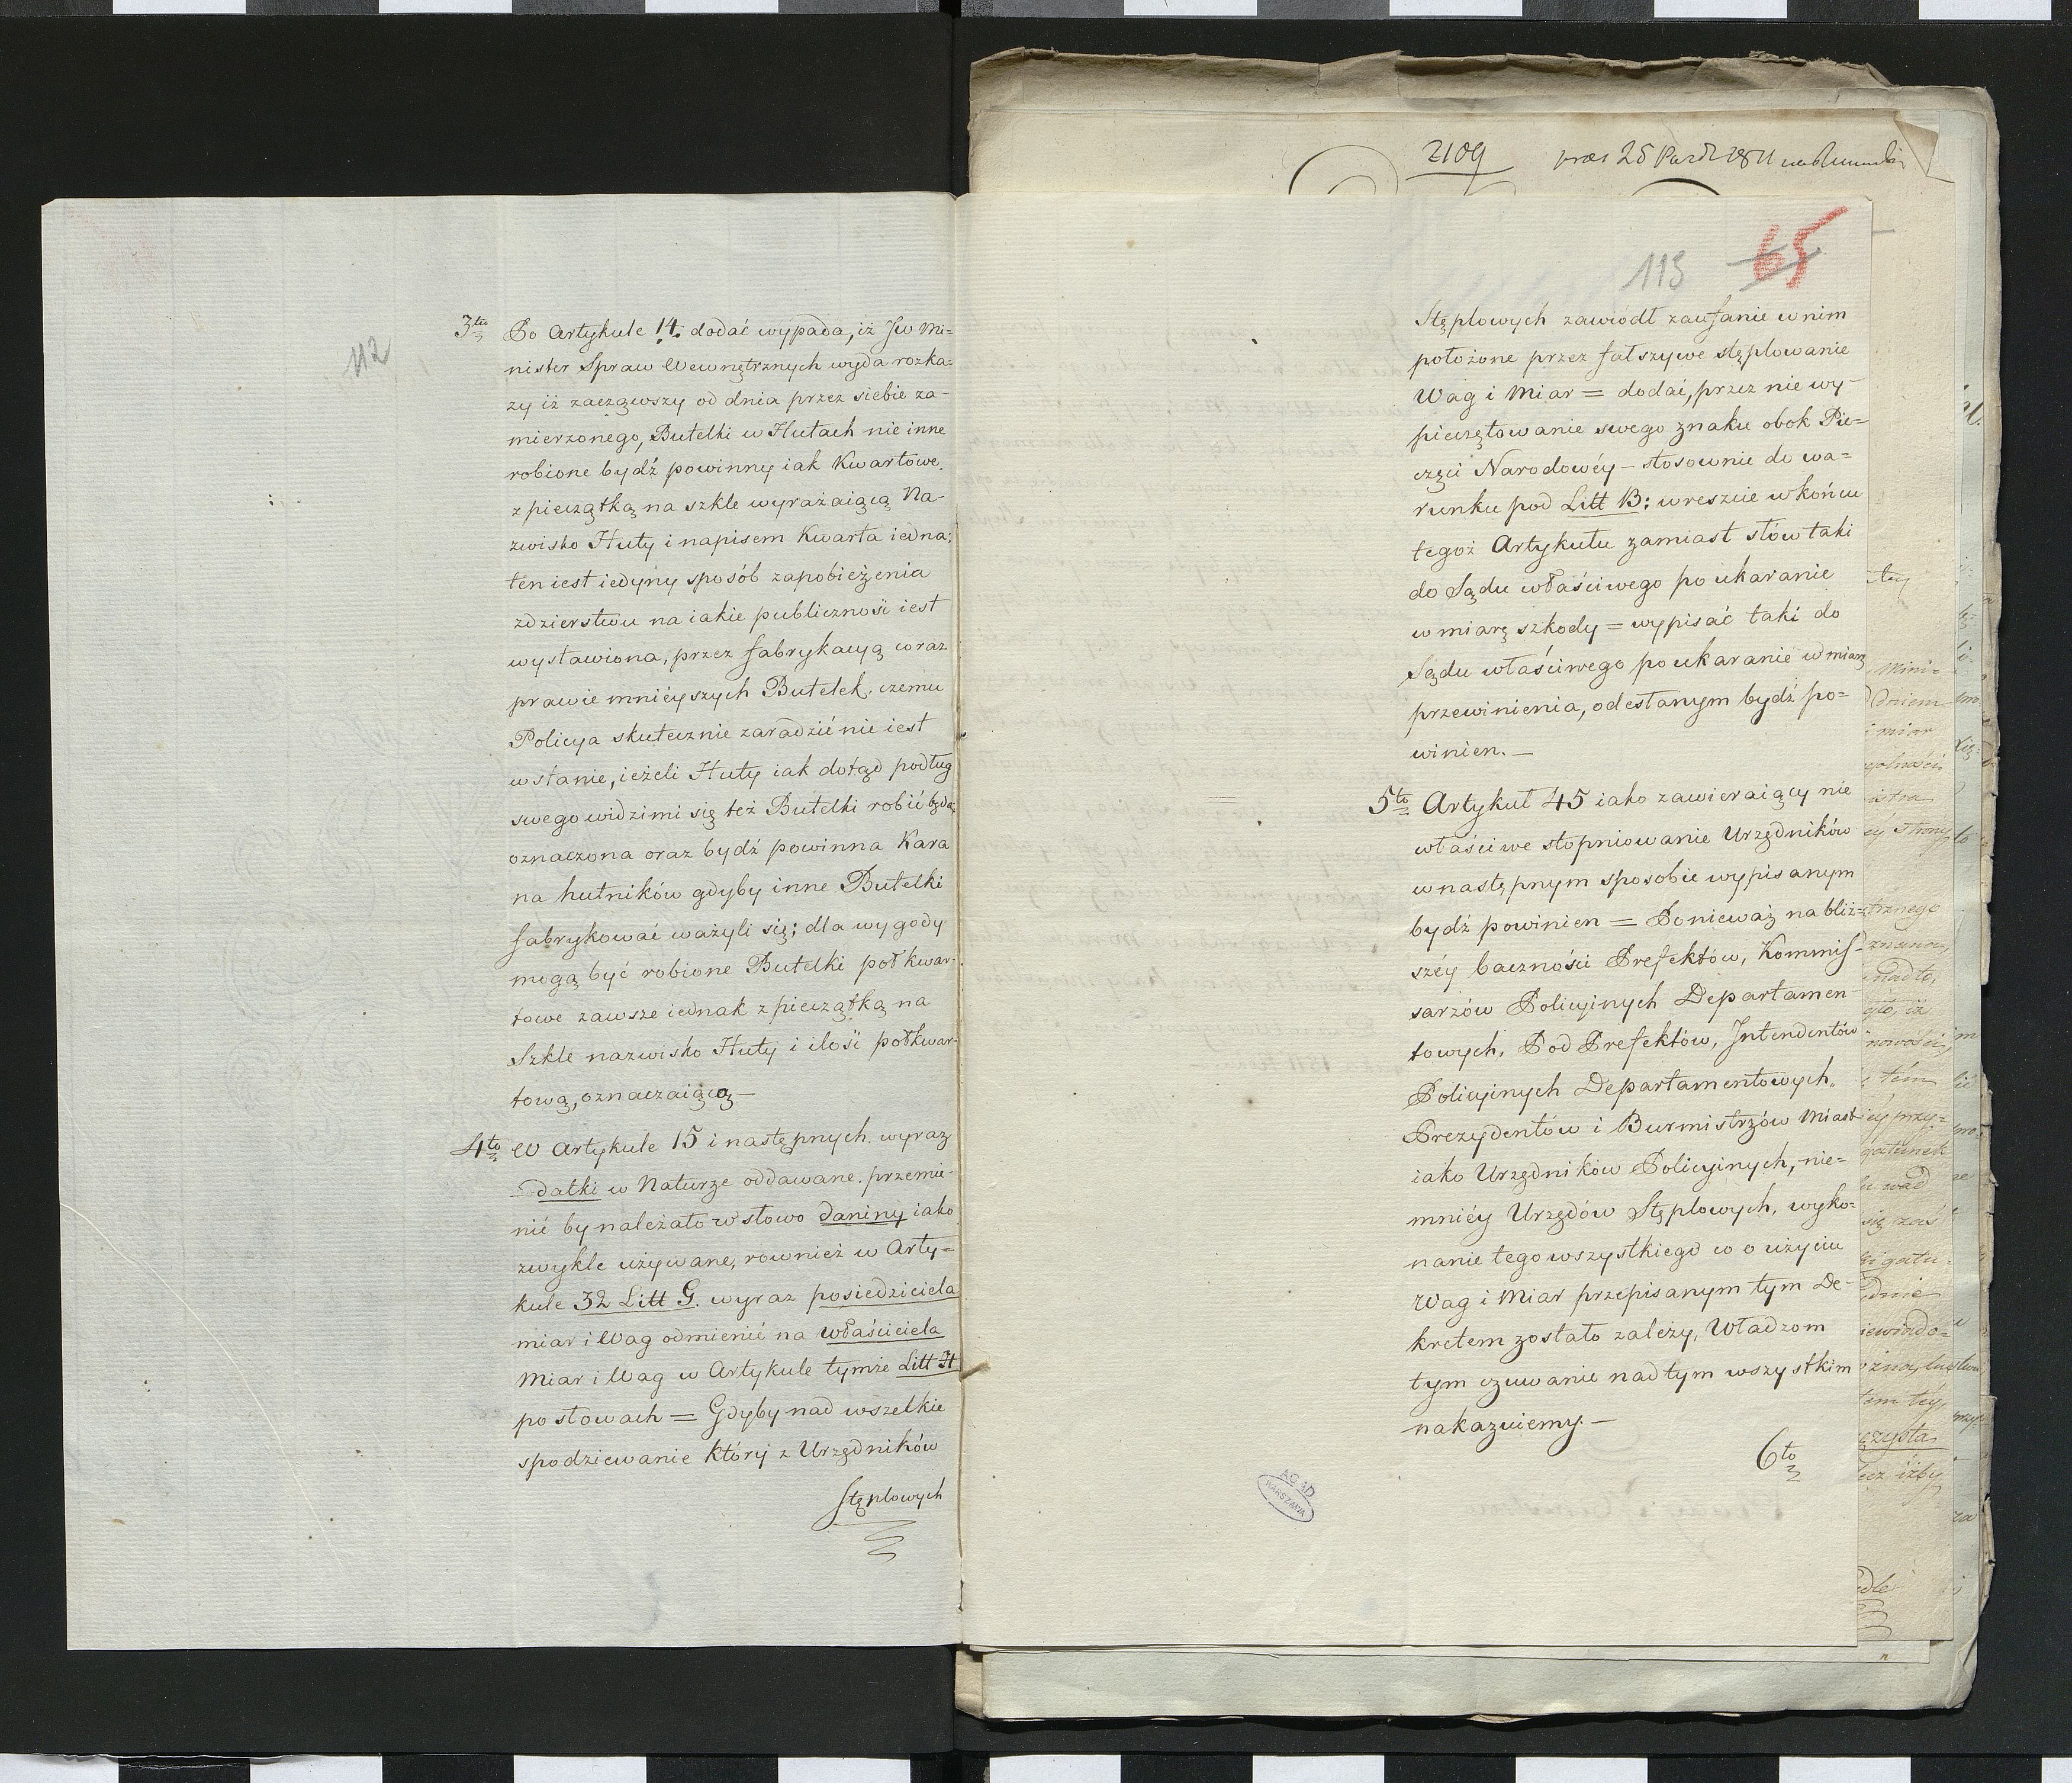 112
3tio Po Artykule 14. dodać wypada, iż JW Mi=
nister Spraw Wewnętrznych wyda rozka=
zy iż zacząwszy od dnia przez siebie za-
mierzonego, Butelki w Hutach nie inne
robione bydź powinny iak Kwartowe,
z pieczątką na szkle wyrażaiącą Na-
zwisko Huty i napisem Kwarta iedna;
ten iest iedyny sposób zapobieżenia
zdzierstwu na iakie publiczność iest
wystawiona, przez fabrykacyą coraz
prawie mnieyszych Butelek, czemu
Policya skutecznie zaradzić nie iest
w stanie, ieżeli Huty iak dotąd podług
swego widzimi się też Butelki robić będą,
oznaczona oraz bydź powinna Kara
na hutników gdyby inne Butelki
fabrykować ważyli się; dla wygody
mogą być robione Butelki połkwar-
towe zawsze iednak z pieczątką na
Szkle nazwisko Huty i ilość połkwar-
tową, oznaczaiącą —
4to W Artykule 15 i następnych. wyraz
datki w Naturze oddawane. przemie-
nić by należało w słowo daniny iako
zwykle używane, rownież w Arty=
kule 32 Litt G. wyraz posiedziciela
miar i Wag odmienić na właściciela
Miar i Wag w Artykule tymże Litt H
po słowach = Gdyby nad wszelkie
spodziewanie który z Urzędników
Stęplowych
2109
25 Paźdz 1811
113 65
Stęplowych zawiódł zaufanie w nim
położone przez fałszywe stęplowanie
Wag i Miar = dodać, przez nie wy-
pieczętowanie swego znaku obok Pie=
częci Narodowéy – stosownie do wa=
runku pod Litt B: wreszcie w końcu
tegoż Artykułu zamiast słów taki
do Sądu właściwego po ukaranie
w miarę szkody = wypisać taki do
Sądu właściwego po ukaranie w miarę
przewinienia, odesłanym bydź po=
winien. —
5to Artykuł 45 iako zawieraiący nie
właściwe stopniowanie Urzędników
w następnym sposobie wypisanym
bydź powinien = Ponieważ na bliż=
széy baczności Prefektów, Kommis-
sarzów Policyinych Departamen-
towych, Pod Prefektów, Jntendentów
Policyinych Departamentowych,
Prezydentów i Burmistrzów Miast
iako Urzędników Policyinych, nie=
mniéy Urzędów Stęplowych, wyko=
nanie tego wszystkiego co o użyciu
Wag i Miar przepisanym tym De-
kretem zostało zależy, Władzom
tym czuwanie nad tym wszystkim
nakazuiemy. —
6to
AGAD
WARSZAWA